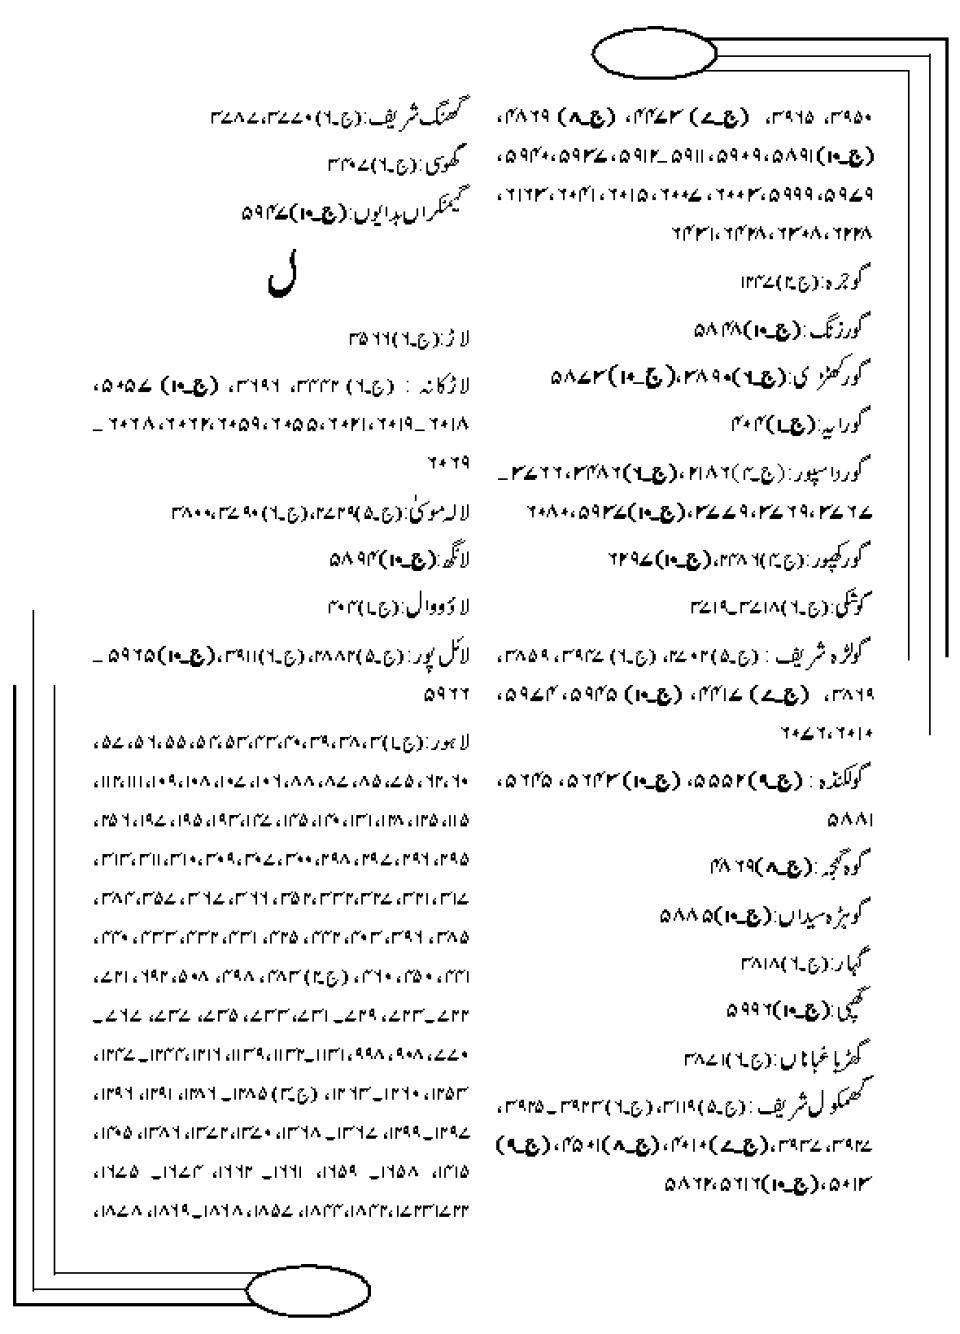 ۳۹۵۰، ۳۹۶۵، (ج۔۷) ۴۴۷۳، (ج۔۸) ۴۸۶۹،
(ج۔۱۰)۵۸۹۱، ۵۹۰۹، ۵۹۱۱۔۵۹۱۲، ۵۹۳۷، ۵۹۴۰،
۵۹۷۹، ۵۹۹۹، ۶۰۰۳، ۶۰۰۷، ۶۰۱۵، ۶۰۴۱، ۶۱۶۳،
۶۲۲۸، ۶۳۰۸، ۶۴۲۸، ۶۴۳۱
گوجرہ:(ج۔۲)۱۲۴۷
گورزنگ:(ج۔۱۰)۵۸۴۸
گورکھڑی:(ج۔۶)۳۸۹۰،(ج۔۱۰)۵۸۷۳
گورایہ:(ج۔۱)۴۰۴
گورداسپور:(ج۔۴)۲۱۸۶،(ج۔۶)۳۴۸۶، ۳۷۶۶۔
۳۷۶۷، ۳۷۶۹، ۳۷۷۹،(ج۔۱۰)۵۹۳۷، ۶۰۸۰
گورکھپور:(ج۔۴)۲۳۸۶،(ج۔۱۰)۶۲۹۷
گوشکی:(ج۔۶)۳۷۱۸۔۳۷۱۹
گولڑہ شریف:(ج۔۵)۲۷۰۲،(ج۔۶)۳۹۴۷، ۳۸۵۹،
۳۸۶۹، (ج۔۷) ۴۴۱۷، (ج۔۱۰) ۵۹۴۵، ۵۹۷۴،
۶۰۱۰، ۶۰۷۶
گولکنڈہ: (ج۔۹)۵۵۵۲، (ج۔۱۰)۵۶۴۳، ۵۶۴۵،
۵۸۸۱
گوہ گچہ:(ج۔۸)۴۸۶۹
گوہڑہ سیداں:(ج۔۱۰)۵۸۸۵
گہار:(ج۔۶)۳۸۱۸
گھپی:(ج۔۱۰)۵۹۹۶
گھڑیا غباناں:(ج۔۶)۳۸۷۱
گھمکول شریف:(ج۔۵)۳۱۱۹،(ج۔۶)۳۹۲۳۔۳۹۲۵،
۳۹۲۷، ۳۹۳۷،(ج۔۷)۴۰۱۰،(ج۔۸)۴۵۰۱،(ج۔۹)
۵۰۱۳،(ج۔۱۰)۵۶۱۶، ۵۸۶۲
گھنگ شریف:(ج۔۶)۳۷۷۰، ۳۷۸۷
گھوسی:(ج۔۶)۳۴۰۷
گیمنکراں بدایوں:(ج۔۱۰)۵۹۴۷
ل
لاڑ:(ج۔۶)۳۵۶۶
لاڑکانہ : (ج۔۶) ۳۴۴۲، ۳۶۹۶، (ج۔۱۰) ۵۰۵۷،
۶۰۱۸۔۶۰۱۹، ۶۰۲۱، ۶۰۵۵، ۶۰۵۹، ۶۰۶۲، ۶۰۶۸۔
۶۰۶۹
لالہ موسیٰ:(ج۔۵)۲۷۲۹،(ج۔۶)۳۷۹۰، ۳۸۰۰
لانگھ:(ج۔۱۰)۵۸۹۴
لاؤ ووال:(ج۔۱)۴۰۴
لائل پور:(ج۔۵)۲۸۸۲،(ج۔۶)۳۹۱۱،(ج۔۱۰)۵۹۶۵۔
۵۹۶۶
لاہور:(ج۔۱)۳، ۳۸، ۳۹، ۴۰، ۴۳، ۵۳، ۵۴، ۵۵، ۵۶، ۵۷،
۶۰، ۶۲، ۷۵، ۸۵، ۸۷، ۸۸، ۱۰۶، ۱۰۷، ۱۰۸، ۱۰۹، ۱۱۱، ۱۱۲،
۱۱۵، ۱۲۵، ۱۲۸، ۱۳۱، ۱۴۰، ۱۴۵، ۱۴۷، ۱۹۳، ۱۹۵، ۱۹۷، ۲۵۶،
۲۹۵، ۲۹۶، ۲۹۷، ۲۹۸، ۳۰۰، ۳۰۷، ۳۰۹، ۳۱۰، ۳۱۱، ۳۱۳،
۳۱۷، ۳۲۱، ۳۲۷، ۳۳۲، ۳۵۲، ۳۶۶، ۳۶۷، ۳۵۷، ۳۸۴،
۳۸۵، ۳۹۶، ۴۰۳، ۴۲۲، ۴۲۵، ۴۳۱، ۴۳۲، ۴۳۳، ۴۴۰،
۴۴۱، ۴۵۰، ۴۶۰، (ج۔۲) ۴۸۳، ۴۹۸، ۵۰۸، ۶۹۲، ۷۲۱،
۷۲۲۔۷۲۳، ۷۲۹۔ ۷۳۱، ۷۳۳، ۷۳۵، ۷۳۷، ۷۶۷۔
۷۷۰، ۹۰۸، ۹۹۸، ۱۱۳۱۔۱۱۳۲، ۱۱۳۹، ۱۲۱۶، ۱۲۴۴۔۱۲۴۷،
۱۲۵۳، ۱۲۶۰۔ ۱۲۶۳، (ج۔۳) ۱۲۸۵۔ ۱۲۸۶، ۱۲۹۱، ۱۲۹۶،
۱۲۹۷۔۱۲۹۹، ۱۳۶۷۔ ۱۳۶۸، ۱۳۷۰، ۱۳۷۲، ۱۳۸۶، ۱۴۰۵،
۱۴۱۵، ۱۶۵۸۔ ۱۶۵۹، ۱۶۶۱۔ ۱۶۶۲، ۱۶۷۴۔ ۱۶۷۵،
۱۷۲۳۱۷۲۲، ۱۸۴۲، ۱۸۴۴، ۱۸۵۷، ۱۸۶۸۔۱۸۶۹، ۱۸۷۸،